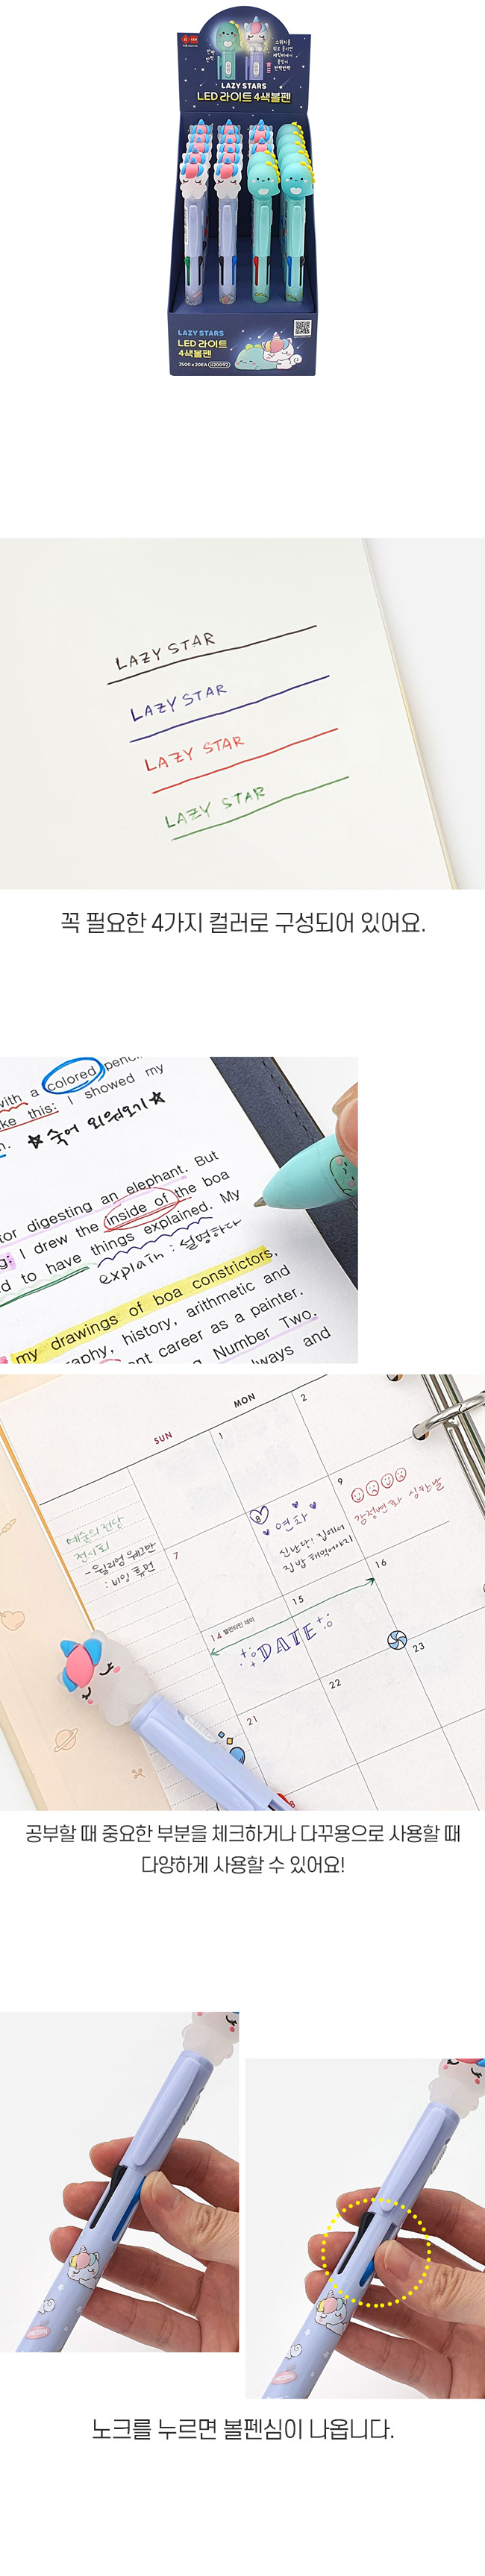 스위치를
위로 올리면
캐릭터에서
불빛이
반짝반짝
LAZY STARS
LED 라이트 4색볼펜
LAZY STARS
LED 라이트
4색볼펜
2500 x 20EA
LAZY STAR
LAZY STAR
LAZY STAR
LAZY STAR
꼭 필요한 4가지 컬러로 구성되어 있어요.
with a colored penc
ke this: I showed my
n. ☆숙어 외워오기☆
for digesting an elephant. But
g: I drew the inside of the boa
d to have things explained. My
explain : 설명하다
my drawings of boa constrictors,
raphy, history, arithmetic and
ent career as a painter.
g Number Two.
lways and
SUN
MON
1
2
7
8
연차
신난다! 집에서
집밥 해먹어야지
9
감정변화 심한 날
예술의 전당
전시회
- 윌리엄 웨그만
: 비잉 휴먼
14 발렌타인 데이
15
16
DATE
21
22
23
공부할 때 중요한 부분을 체크하거나 다꾸용으로 사용할 때
다양하게 사용할 수 있어요!
노크를 누르면 볼펜심이 나옵니다.